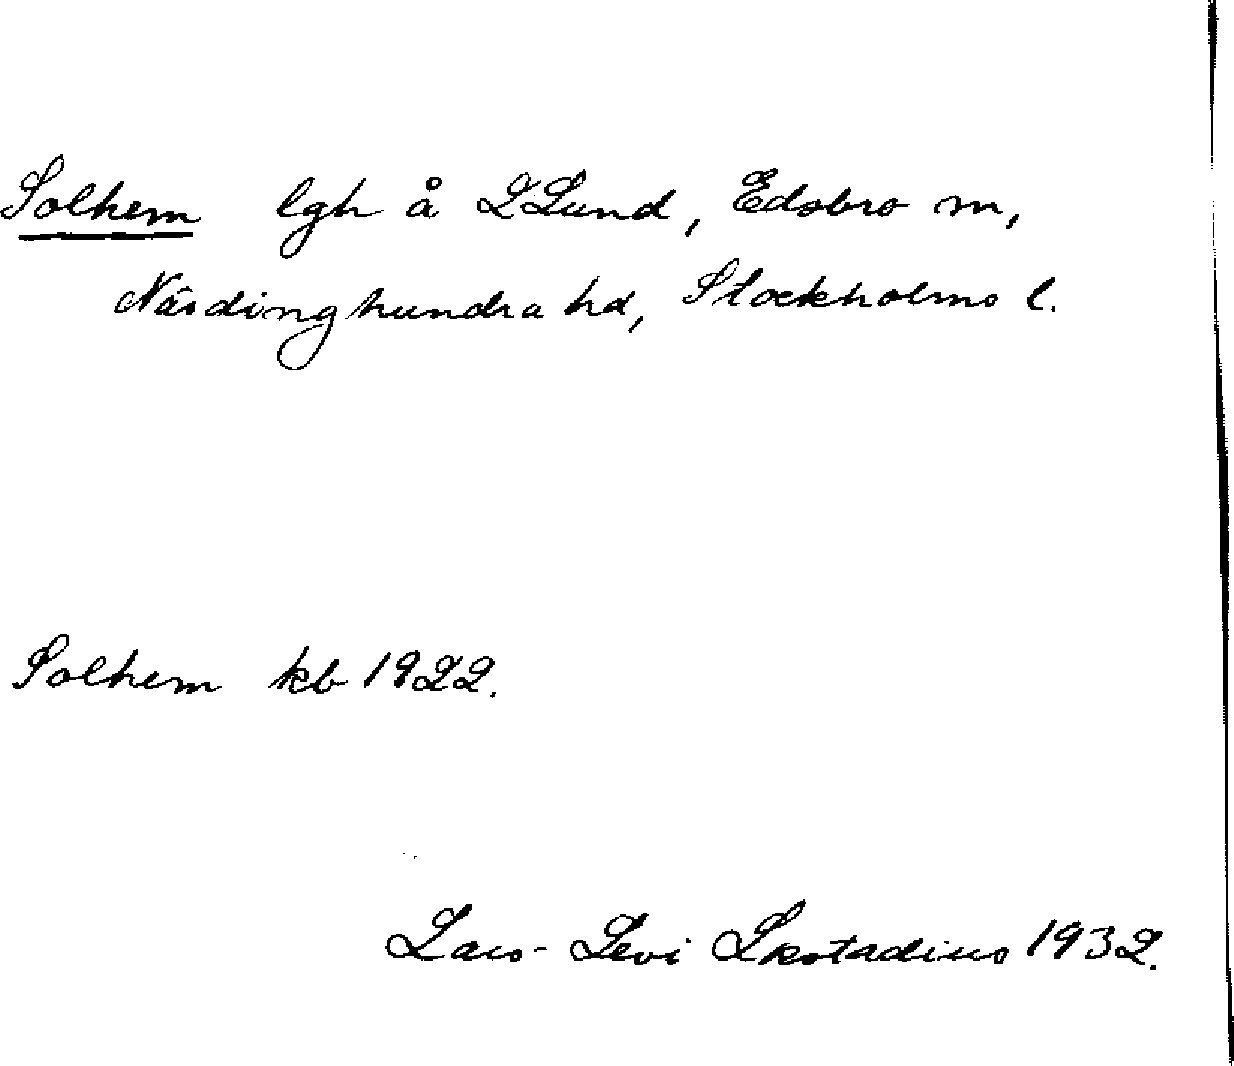 Solhem lgh å L Lund, Edsbro sn,
Närdinghundra hd, Stockholms l.
Solhem kb 1922.
Lars-Levi Læstadius 1932.